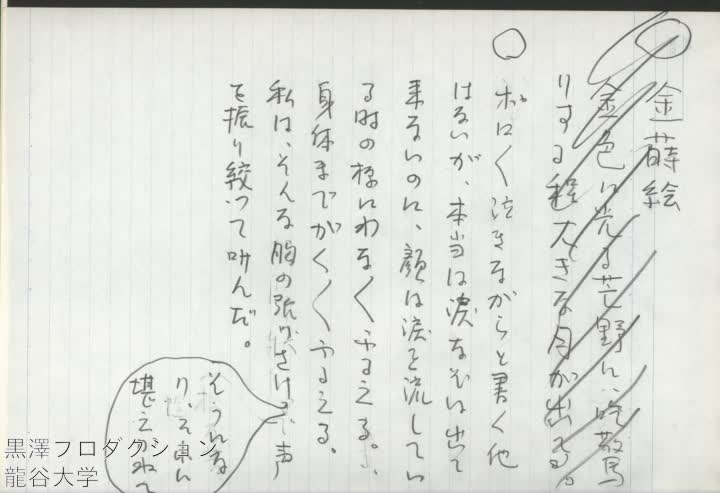 金蒔絵
金色に光る荒野に、吃驚
りする程大きな月が出る。
ポにく泣きながらと書く他
はないが、本当は涙なぞは出て
来ないのに、顔は涙を流してい
る時の様にわなくふるえる。
身体までがくくふるえる。
私は、そんな胸の張りさけ
で声
を振り絞って叫んだ。
そうな
り、そ
堪えかねて
黒澤プロダクション
龍谷大学